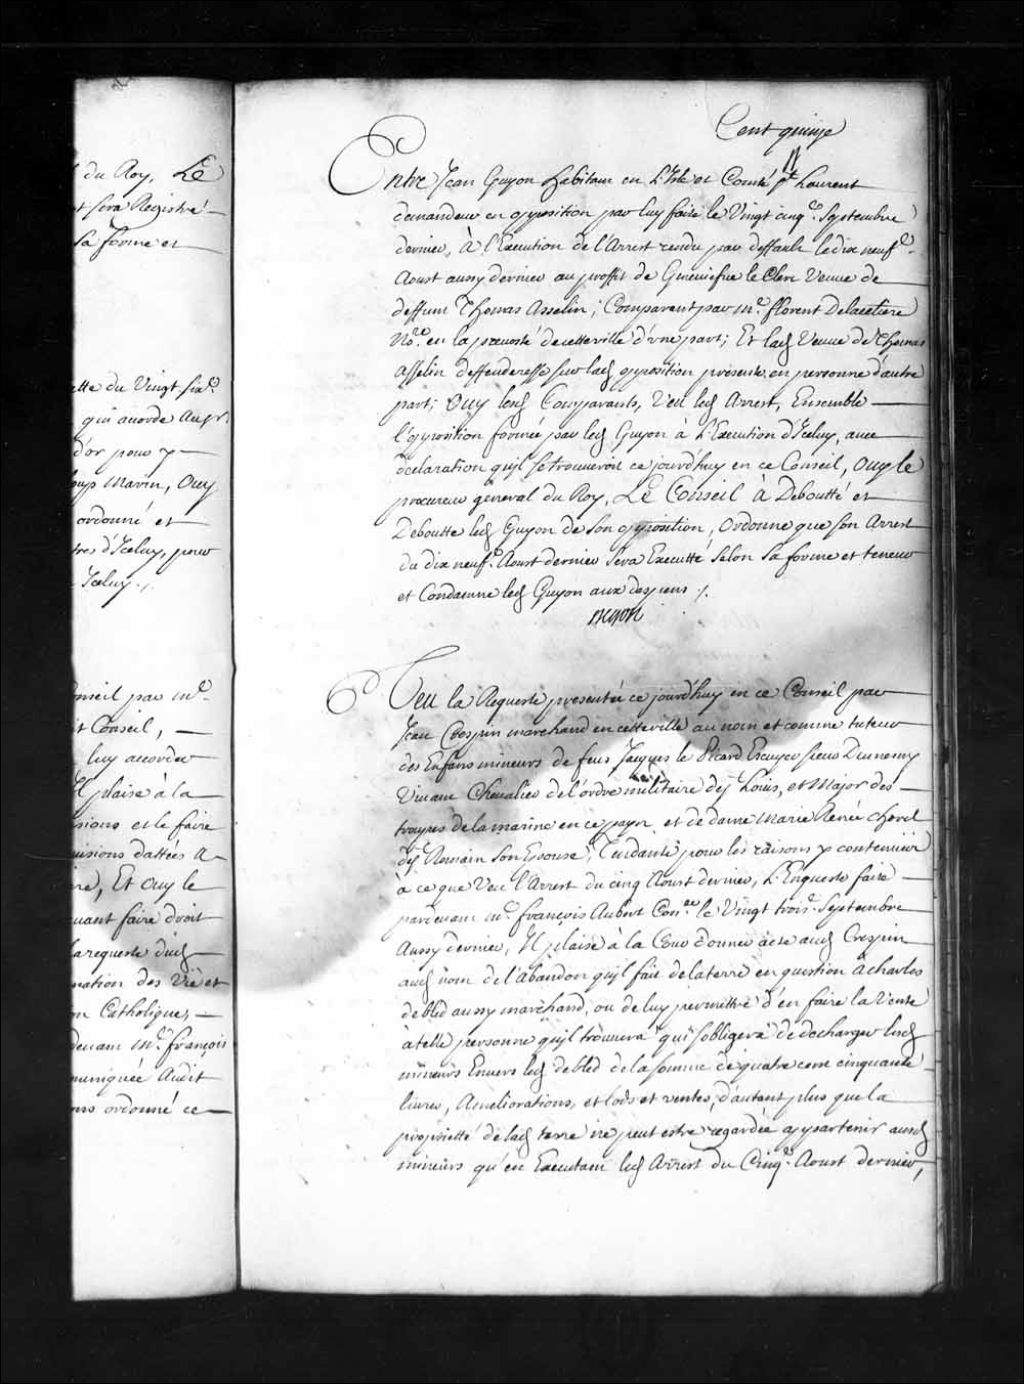 du Roy, Le
et sera Registré
sa forme et
ette du Vingt six.e
qui avorde Aux
d'or pour y
Marin, Ouy
ordonné et
d'Iceluy, pour
Iceluy./.
onseil par M.e
it Conseil,
luy accorder
Il plaise à la
et le faire
dattées A
Et Ouy le
uant faire droit
la requeste dud.
mation des Vie et
on Catholique,
devant M.e françois
muniquée Audit
ordonné ce
Cent quinze
Entre Jean Guyon habitant en L'Isle et Comté S.t Laurent
demandeur en opposition par luy faite le Vingt cinq.e Septembre
dernier, à l'Execution de l'Arrest rendu par deffault le dix neuf.e
Aoust aussy dernier au proffit de Geneviefve le Clerc Veuve de
deffunt Thomas Asselin; Comparent par M.e florent Delacetiere
No.re en la prevosté de cette ville d'une part; Et lad. Veuve de Thomas
Asselin deffenderesse sur lad. opposition presente en personne d'autre
part; Ouy lesd. Comparants, Veu led. Arrest, Ensemble
l'opposition formée par led. Guyon à L'Execution d'Iceluy, avec
declaration qu'il se trouveroit ce jourd'huy en ce Conseil, Ouy le
procureur general du Roy, Le Conseil à Deboutté et
Deboutte led. Guyon de son opposition, Ordonne que son Arrest
du dix neuf.e Aoust dernier sera Executté selon sa forme et teneur
et Condamne led. Guyon aux despens ./.
Begon
Veu la Requeste presentée ce jourd'huy en ce Conseil par
Jean Crespin marchand en cette ville au nom et comme tuteur
des Enfans mineurs de feus Jacques le Picard Escuyer sieur Dumesny
Vivant Chevalier de l'ordre militaire de S.t Louis, et Major des
troupes de la marine en ce pays et de dame Marie Renée chorel
de S.t Romain son Epouse, Tendante pour les raisons y contenües
à ce que Veu l'Arrest du cinq Aoust dernier, L'Enqueste faite
pardevant M.e françois Aubert Con.er le Vingt trois.e Septembre
Aussy dernier, Il plaise à la Cour donner acte aud. Crespin
aud. nom de l'Abandon qu'il fait de la terre en question à charles
debled aussy marchand, ou de luy permettre d'en faire la Vente
à telle personne qu'il trouvera qui s'obligera de decharger lesd.
mineurs Envers led. debled de la somme de quatre cent cinquante
livres, Ameliorations, et lods et ventes, d'autant plus que la
proprietté de lad. terre ne peut estre regardée appartenir ausd.
mineurs qu'en Executant led. Arrest du Cinq.e Aoust dernier,